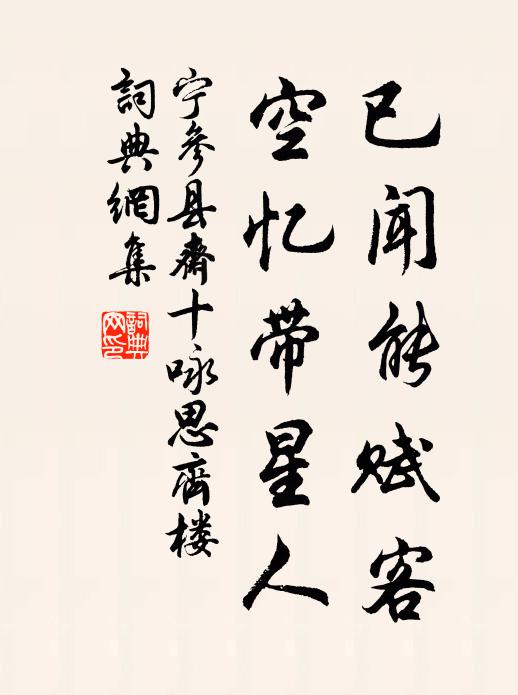 已闻能赋客
空忆带星人
宁参县斋十咏思齐楼
詞典網集
詞典
网印